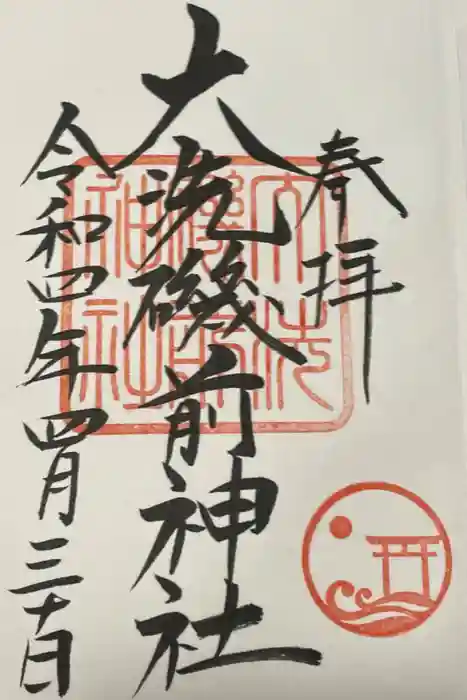 奉拝
大洗磯前神社
令和四年四月三十日
大洗
磯前
神社